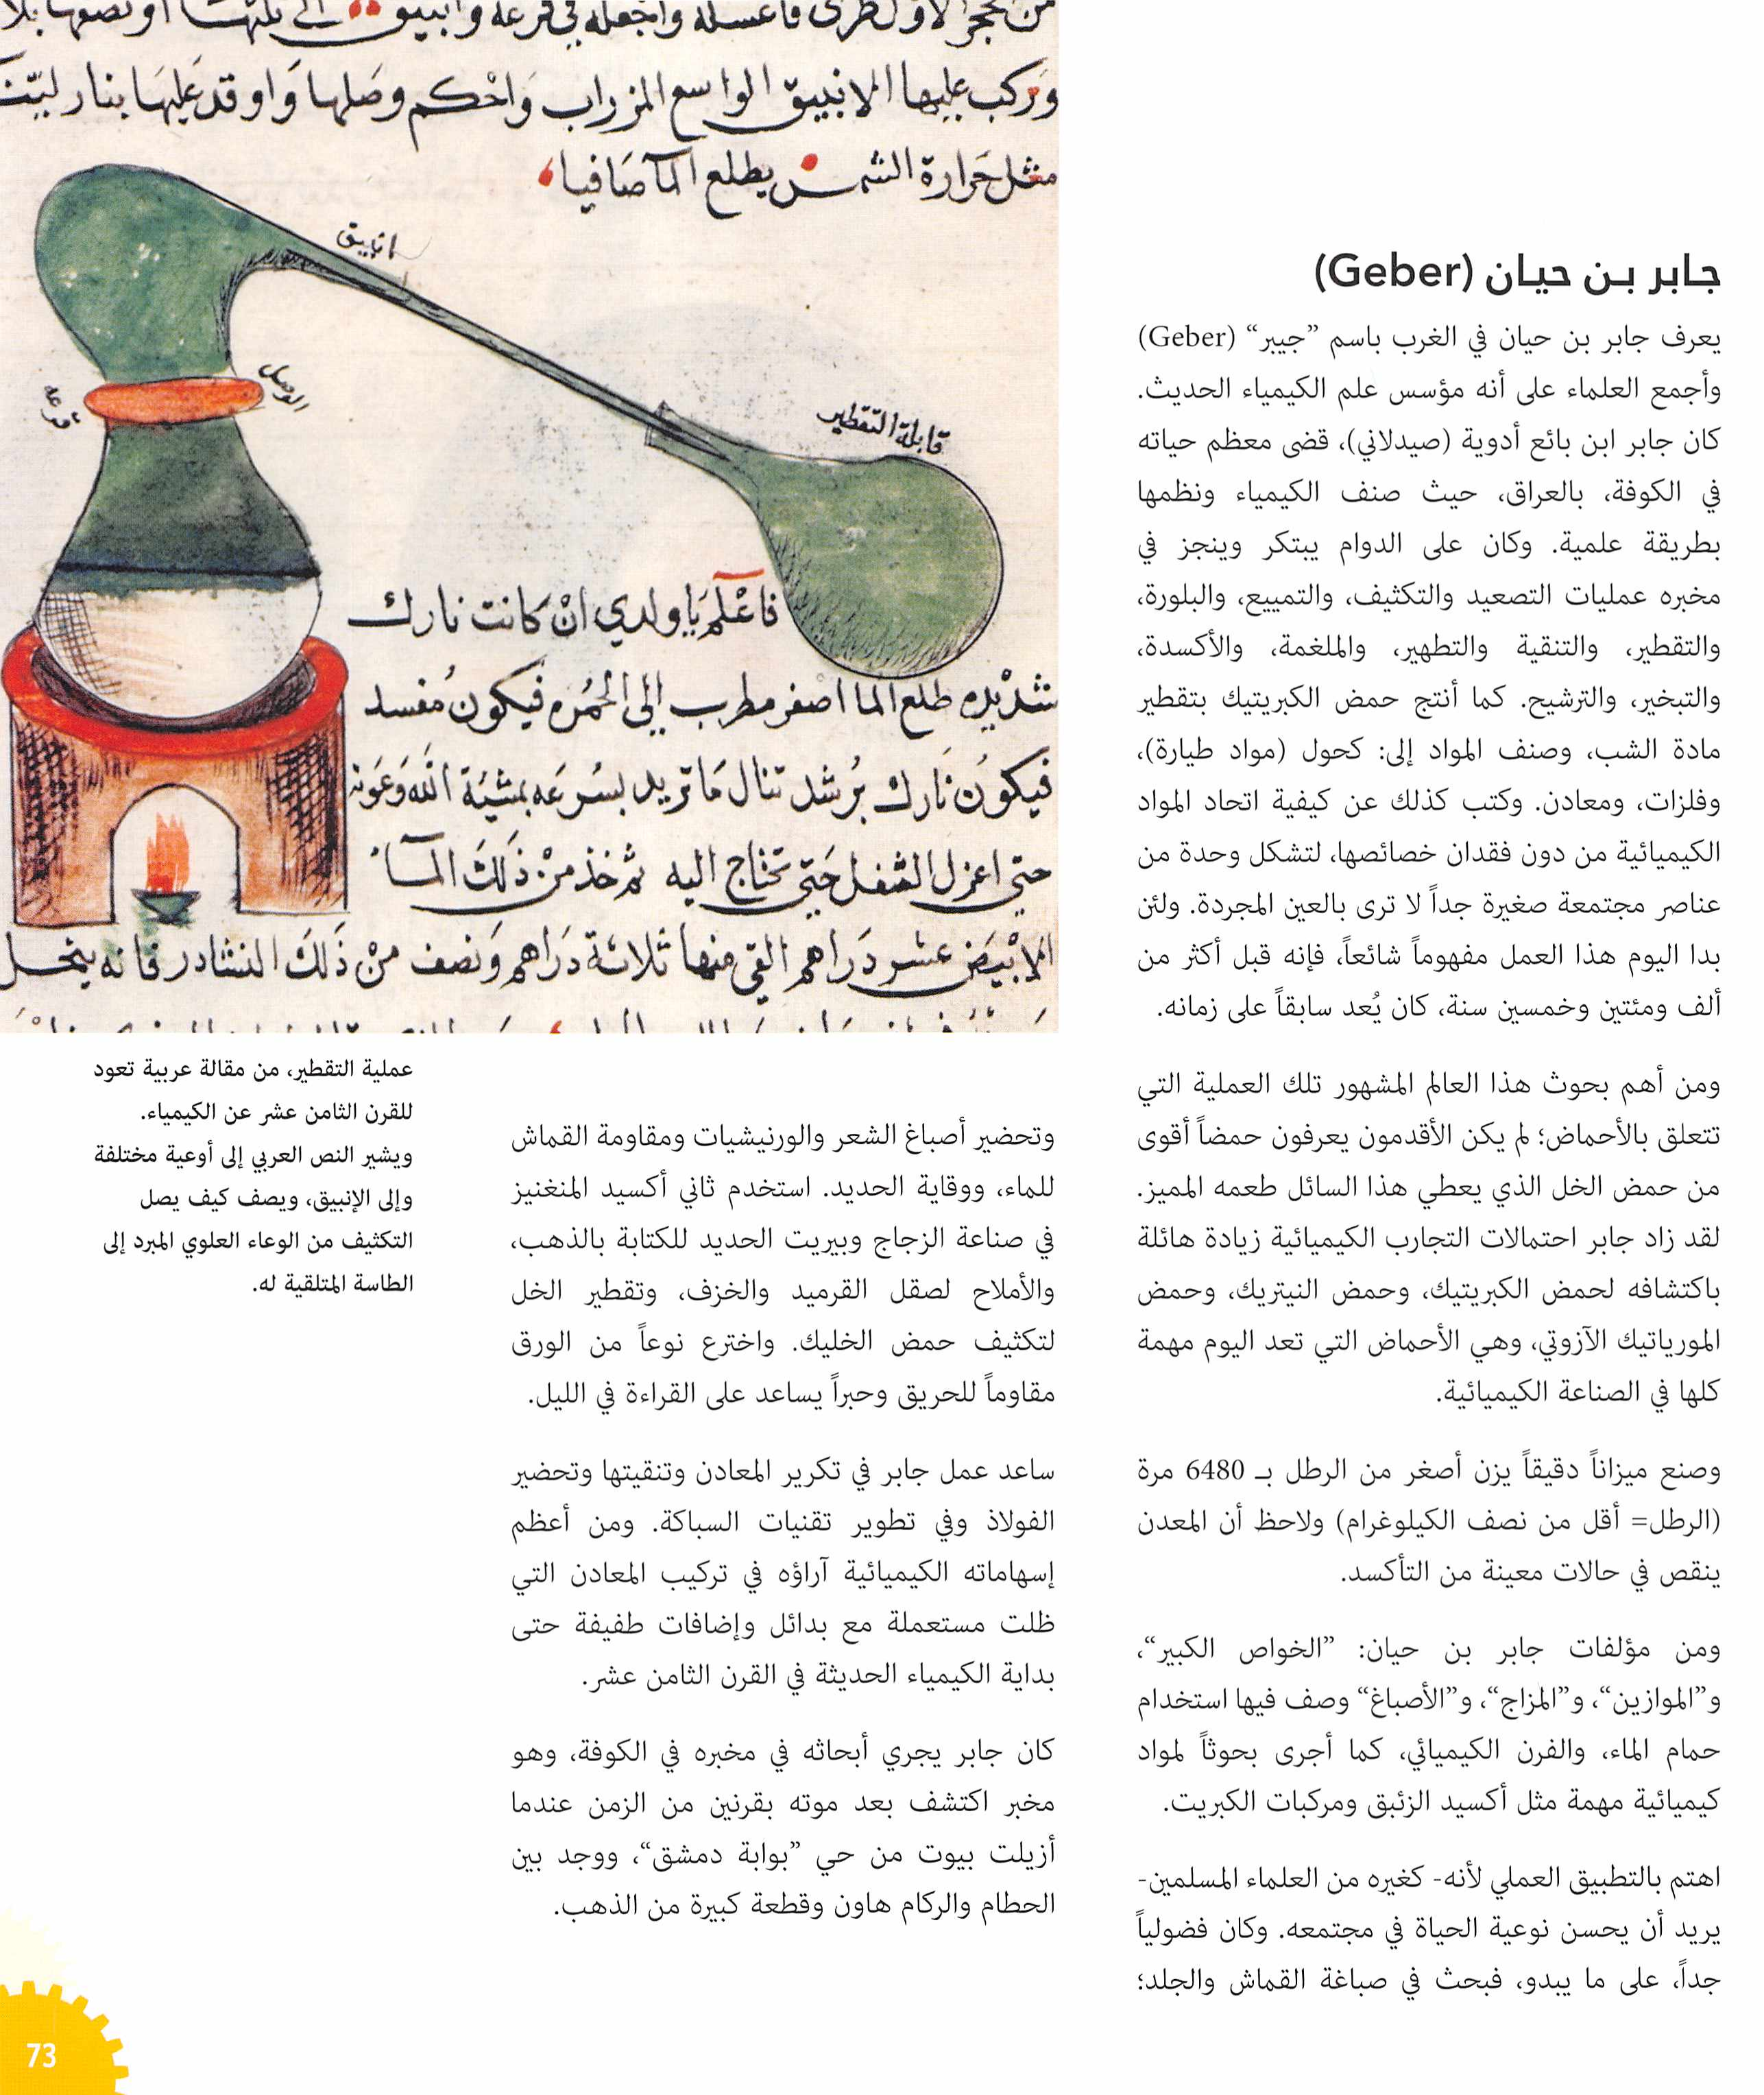 وركب عليها الانبيق الواسع المزراب واحكم وصلها واوقد عليها بنار لينة
مثل حرارة الشمس يطلع المآ صافيا
انبيق
الوصل
قرعه
قابلة التقطير
فاعلم يا ولدي ان كانت نارك
شديده طلع الما اصفر مطرب إلى الحمره فيكون مفسد
فيكون نارك برشد تنال ما تريد بسرعه بمشية الله وعونه
حتى اعزل الثفل حتى تحتاج اليه ثم خذ من ذلك المآ
الابيض عشر دراهم القي منها ثلاثة دراهم ونصف من ذلك النشادر فانه ينحل
جابر بن حيان (Geber)
يعرف جابر بن حيان في الغرب باسم ”جيبر“ (Geber)
وأجمع العلماء على أنه مؤسس علم الكيمياء الحديث.
كان جابر ابن بائع أدوية (صيدلاني)، قضى معظم حياته
في الكوفة، بالعراق، حيث صنف الكيمياء ونظمها
بطريقة علمية. وكان على الدوام يبتكر وينجز في
مخبره عمليات التصعيد والتكثيف، والتمييع، والبلورة،
والتقطير، والتنقية والتطهير، والملغمة، والأكسدة،
والتبخير، والترشيح. كما أنتج حمض الكبريتيك بتقطير
مادة الشب، وصنف المواد إلى: كحول (مواد طيارة)،
وفلزات، ومعادن. وكتب كذلك عن كيفية اتحاد المواد
الكيميائية من دون فقدان خصائصها، لتشكل وحدة من
عناصر مجتمعة صغيرة جداً لا ترى بالعين المجردة. ولئن
بدا اليوم هذا العمل مفهوماً شائعاً، فإنه قبل أكثر من
ألف ومئتين وخمسين سنة، كان يُعد سابقاً على زمانه.
ومن أهم بحوث هذا العالم المشهور تلك العملية التي
تتعلق بالأحماض؛ لم يكن الأقدمون يعرفون حمضاً أقوى
من حمض الخل الذي يعطي هذا السائل طعمه المميز.
لقد زاد جابر احتمالات التجارب الكيميائية زيادة هائلة
باكتشافه لحمض الكبريتيك، وحمض النيتريك، وحمض
المورياتيك الآزوتي، وهي الأحماض التي تعد اليوم مهمة
كلها في الصناعة الكيميائية.
وصنع ميزاناً دقيقاً يزن أصغر من الرطل بـ 6480 مرة
(الرطل= أقل من نصف الكيلوغرام) ولاحظ أن المعدن
ينقص في حالات معينة من التأكسد.
ومن مؤلفات جابر بن حيان: ”الخواص الكبير“،
و”الموازين“، و”المزاج“، و”الأصباغ“ وصف فيها استخدام
حمام الماء، والفرن الكيميائي، كما أجرى بحوثاً لمواد
كيميائية مهمة مثل أكسيد الزئبق ومركبات الكبريت.
اهتم بالتطبيق العملي لأنه- كغيره من العلماء المسلمين-
يريد أن يحسن نوعية الحياة في مجتمعه. وكان فضولياً
جداً، على ما يبدو، فبحث في صباغة القماش والجلد؛
وتحضير أصباغ الشعر والورنيشيات ومقاومة القماش
للماء، ووقاية الحديد. استخدم ثاني أكسيد المنغنيز
في صناعة الزجاج وبيريت الحديد للكتابة بالذهب،
والأملاح لصقل القرميد والخزف، وتقطير الخل
لتكثيف حمض الخليك. واخترع نوعاً من الورق
مقاوماً للحريق وحبراً يساعد على القراءة في الليل.
ساعد عمل جابر في تكرير المعادن وتنقيتها وتحضير
الفولاذ وفي تطوير تقنيات السباكة. ومن أعظم
إسهاماته الكيميائية آراؤه في تركيب المعادن التي
ظلت مستعملة مع بدائل وإضافات طفيفة حتى
بداية الكيمياء الحديثة في القرن الثامن عشر.
كان جابر يجري أبحاثه في مخبره في الكوفة، وهو
مخبر اكتشف بعد موته بقرنين من الزمن عندما
أزيلت بيوت من حي ”بوابة دمشق“، ووجد بين
الحطام والركام هاون وقطعة كبيرة من الذهب.
عملية التقطير، من مقالة عربية تعود
للقرن الثامن عشر عن الكيمياء.
ويشير النص العربي إلى أوعية مختلفة
وإلى الإنبيق، ويصف كيف يصل
التكثيف من الوعاء العلوي المبرد إلى
الطاسة المتلقية له.
73